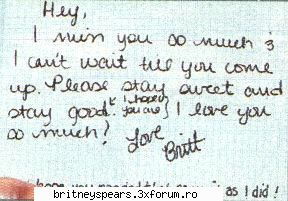 Hey,
I miss you so much &
I can't wait till you come
up. Please stay sweet and
stay good! { I hope you are } I love you
so much!
Love
Britt
as I did!
britneyspears.3xforum.ro